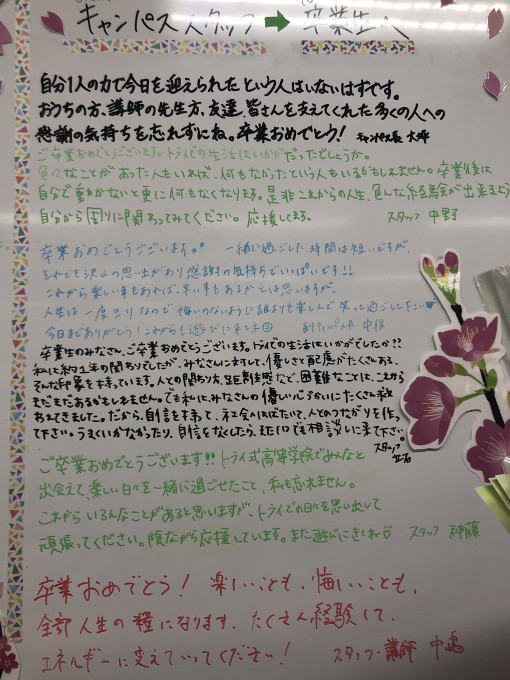 キャンパススタッフ → 卒業生へ
自分1人の力で今日を迎えられたという人はいないはずです。
おうちの方、講師の先生方、友達、皆さんを支えてくれた多くの人への
感謝の気持ちを忘れずにね。卒業おめでとう! キャンパス長 大坪
ご卒業おめでとうございます。トライでの生活はいかがだったでしょうか。
色々なことがあった人もいれば、何もなかったという人もいるかもしれません。卒業後は
自分で動かないと更に何もなくなります。是非これからの人生、色んな経験が出来るよう
自分から周りに関わってみてください。応援してます。 スタッフ 中野
卒業おめでとうございます 一緒に過ごした時間は短いですが、
それでも沢山の思い出があり感謝の気持ちでいっぱいです!!
これから楽しい事もあれば、辛い事もあるかとは思いますが、
人生は一度きりなので悔いのないように誰よりも楽しんで笑って過ごして下さい
今日までありがとう!これからも遊びに来てネ 副キャンパス長
卒業生のみなさん、ご卒業おめでとうございます。トライでの生活はいかがでしたか??
私とは約1年の関わりでしたが、みなさんに対して、優しさと配慮がたくさんある、
そんな印象を持っています。人との関わり方、距離感など、困難なことは、これから
まだまだあるかもしれません。でも私は、みなさんの優しい心づかいにたくさん救
われてきました。だから、自信を持って、社会へはばたいて、人とのつながりを作っ
て下さい。うまくいかなかったり、自信をなくしたら、またいつでも相談しに来て下さい。
スタッフ
ご卒業おめでとうございます!! トライ式高等学院でみんなと
出会えて楽しい日々を一緒に過ごせたこと、私も忘れません。
これからいろんなことがあると思いますが、トライでの日々を思い出して
頑張ってください。陰ながら応援しています。また遊びにきてね♡ スタッフ 伊藤
卒業おめでとう! 楽しいことも、悔しいことも、
全部人生の糧になります。たくさん経験して、
エネルギーに変えていってください! スタッフ・講師 中